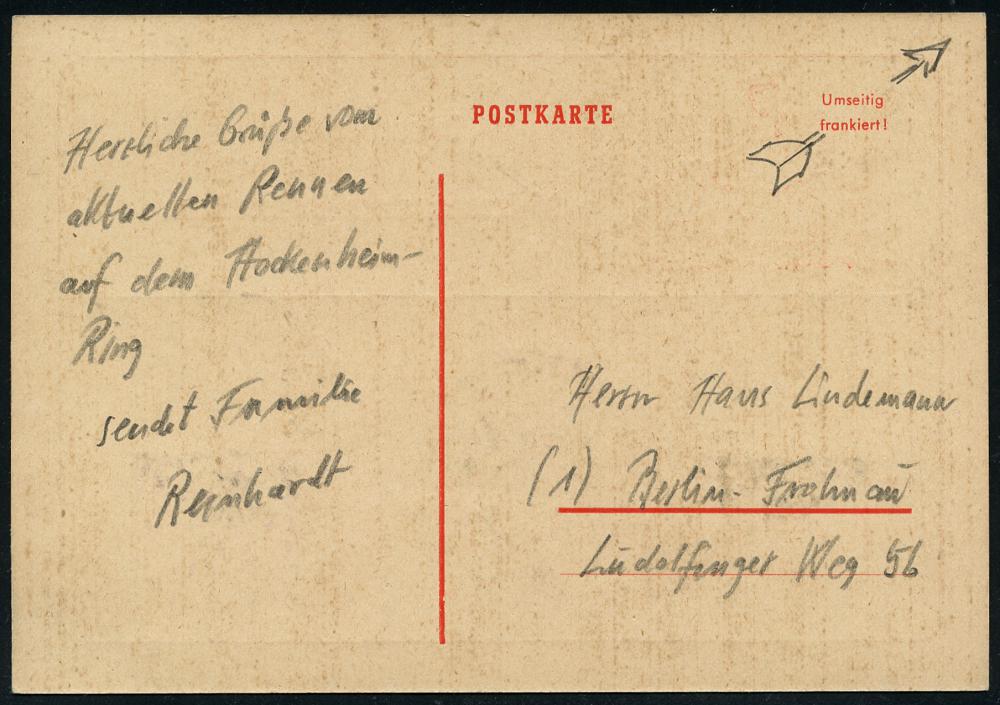 Herzliche Grüße vom
aktuellen Rennen
auf dem Hockenheim-
Ring
sendet Familie
Reinhardt
POSTKARTE
Umseitig
frankiert!
Herrn Hans Lindemann
(1) Berlin-Frohnau
Ludolfinger Weg 56